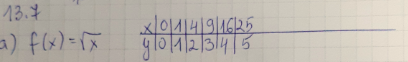 13.7
a) f(x)=√x
x|0|1|4|9|16|25
y|0|1|2|3|4|5